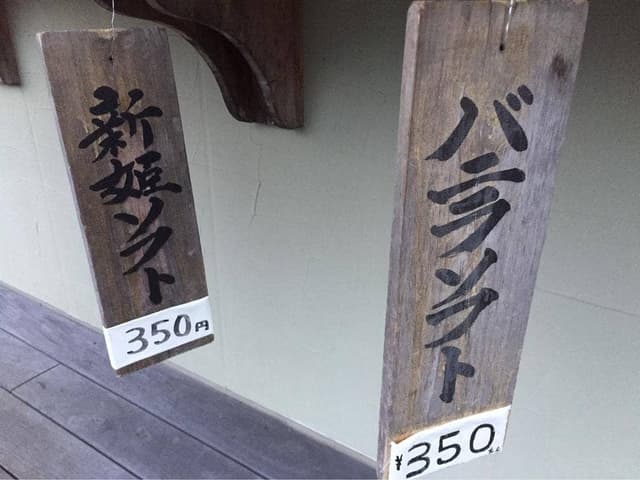 新姫ソフト
350円
バニラソフト
¥350